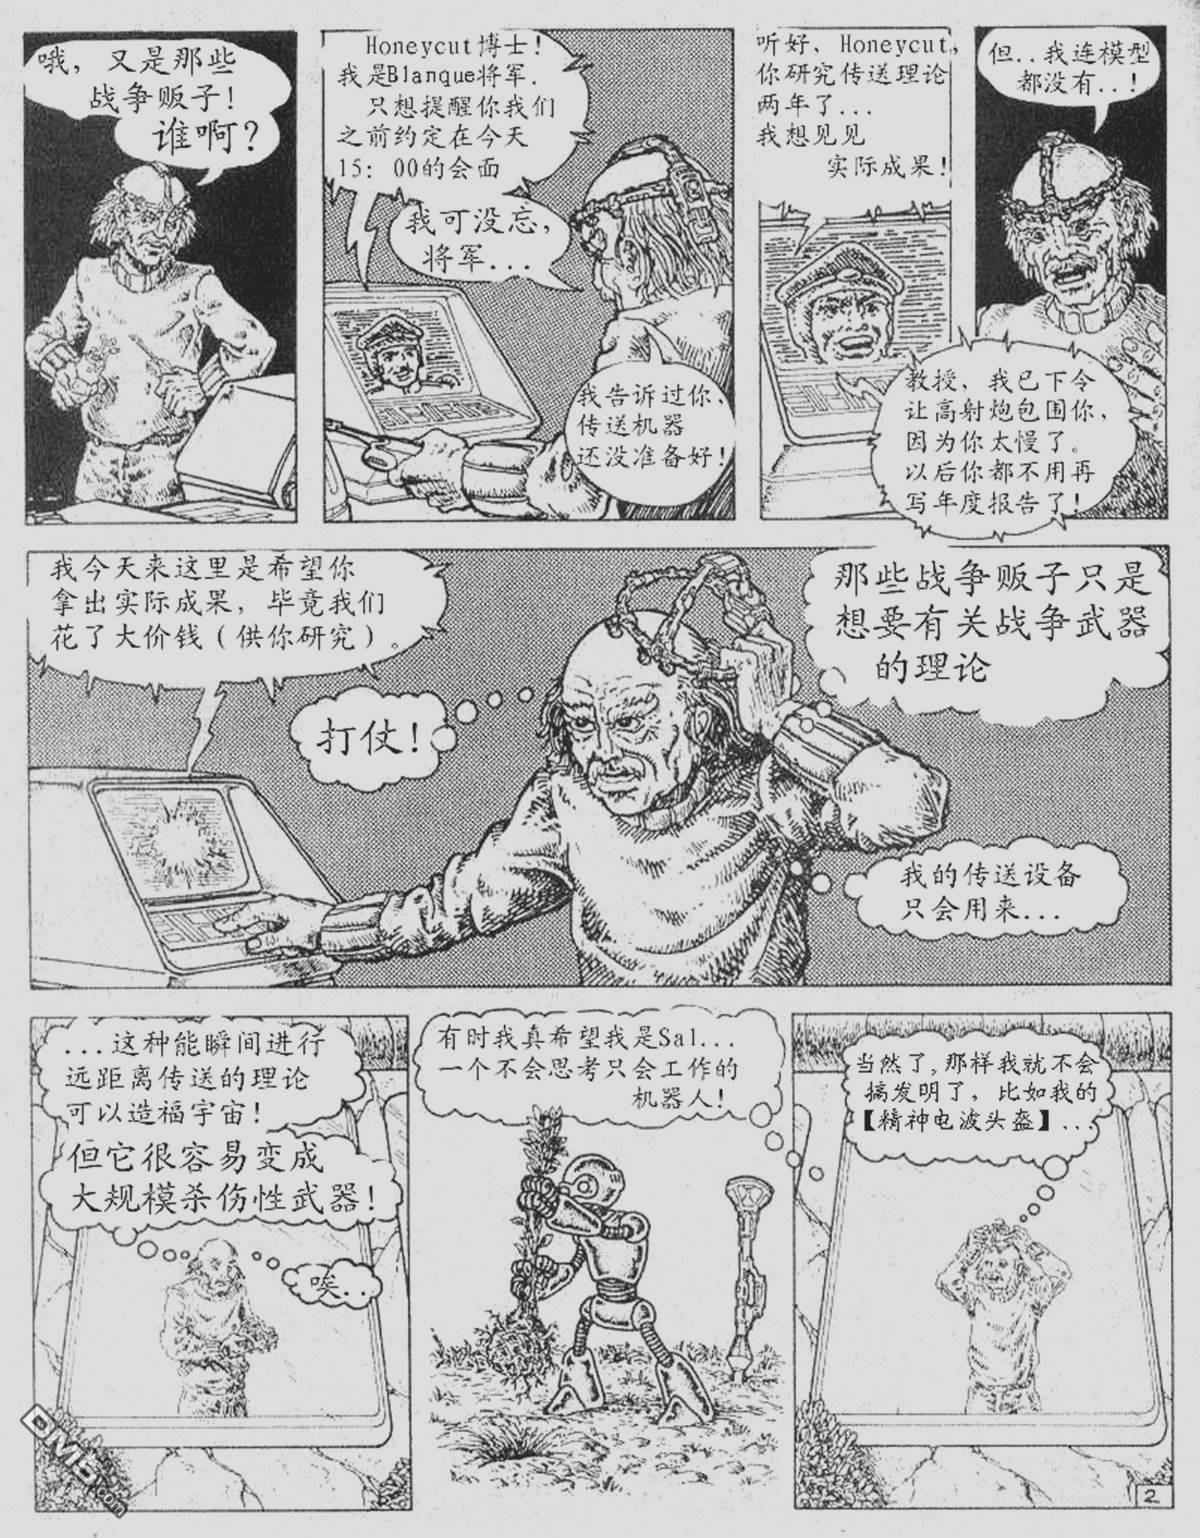 哦，又是那些
战争贩子！
谁啊？
Honeycut博士！
我是Blanque将军．
只想提醒你我们
之前约定在今天
15：00的会面
我可没忘，
将军...
我告诉过你，
传送机器
还没准备好！
听好，Honeycut，
你研究传送理论
两年了...
我想见见
实际成果！
但..我连模型
都没有..！
教授，我已下令
让高射炮包围你，
因为你太慢了。
以后你都不用再
写年度报告了！
我今天来这里是希望你
拿出实际成果，毕竟我们
花了大价钱（供你研究）。
打仗！
那些战争贩子只是
想要有关战争武器
的理论
我的传送设备
只会用来...
...这种能瞬间进行
远距离传送的理论
可以造福宇宙！
但它很容易变成
大规模杀伤性武器！
唉..
有时我真希望我是Sal...
一个不会思考只会工作的
机器人！
当然了,那样我就不会
搞发明了，比如我的
【精神电波头盔】...
2
DM5.com